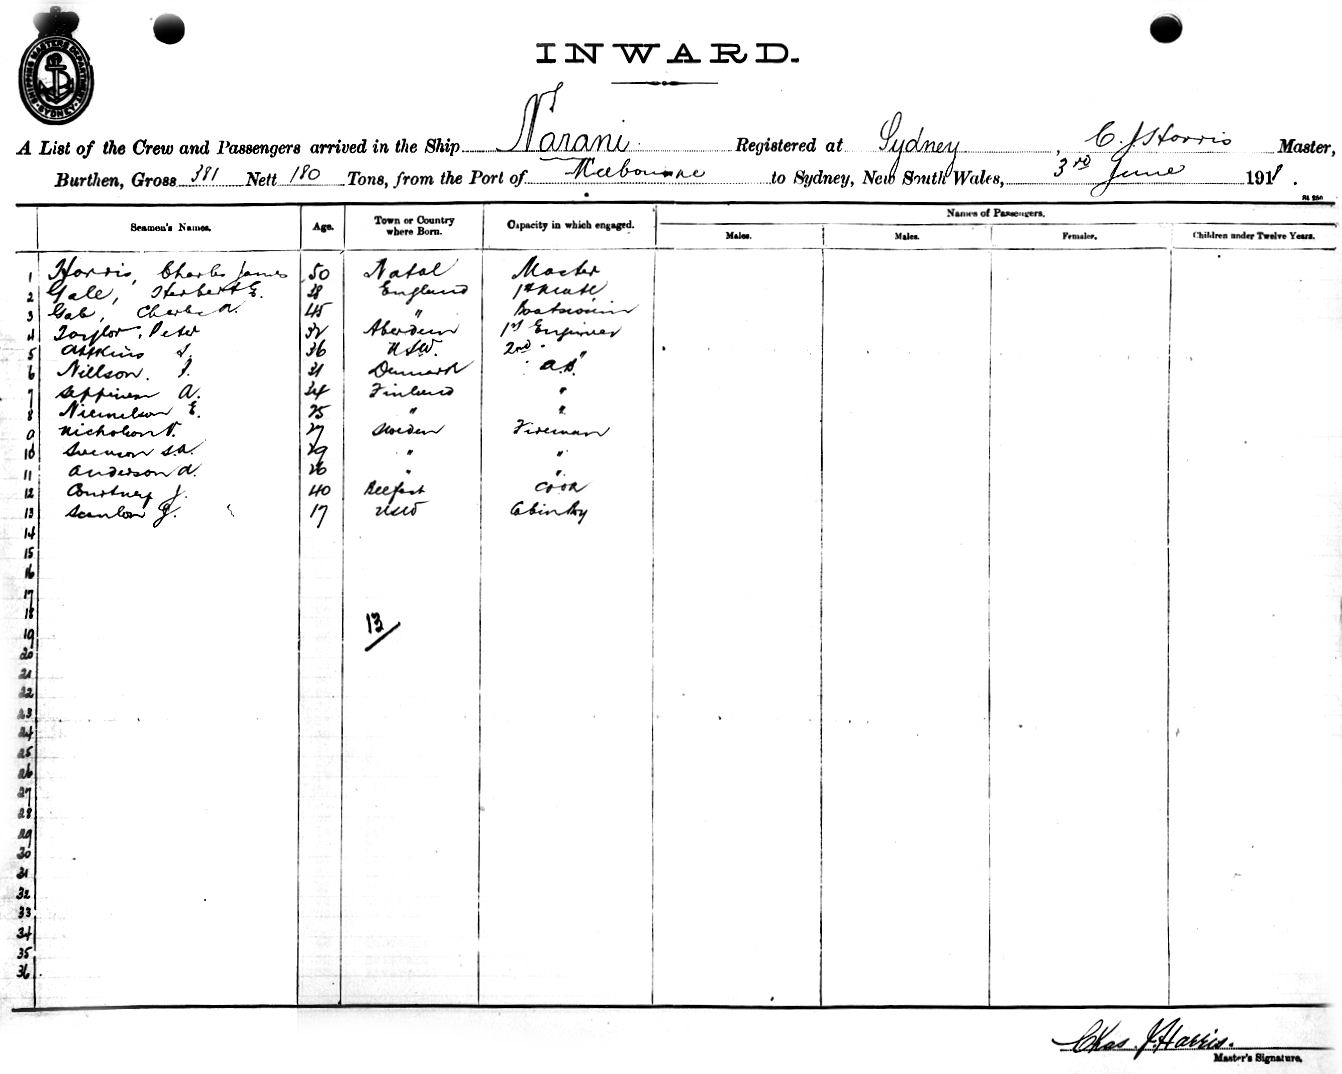 SHIPPING MASTERS DEPARTMENT SYDNEY
INWARD.
A List of the Crew and Passengers arrived in the Ship Narani Registered at Sydney, C. J. Harris Master,
Burthen, Gross 381 Nett 180 Tons, from the Port of Melbourne to Sydney, New South Wales, 3rd June 1911.
Names of Passengers.
Seamen's Names. Age. Town or Country where Born. Capacity in which engaged. Males. Males. Females. Children under Twelve Years.
1 Harris, Charles James 50 Natal Master
2 Gale, Herbert E. 38 England 1st Mate
3 Gale, Charles A. 45 " Boatswain
4 Taylor, Peter 32 Aberdeen 1st Engineer
5 36 NSW. 2nd "
6 Nillson. 31 Denmark A.B.
7 Seppinen A. 34 Finland "
8 E. 25 " "
9 Nicholson 27 Sweden Fireman
10 Svenson S.A. 29 " "
11 Anderson A. 26 " "
12 Courtney J. 40 Belfast Cook
13 Scanlon J. 17 NSW Cabin Boy
14
15
16
17
18
13
19
20
21
22
23
24
25
26
27
28
29
30
31
32
33
34
35
36
Chas. J. Harris.
Master's Signature.